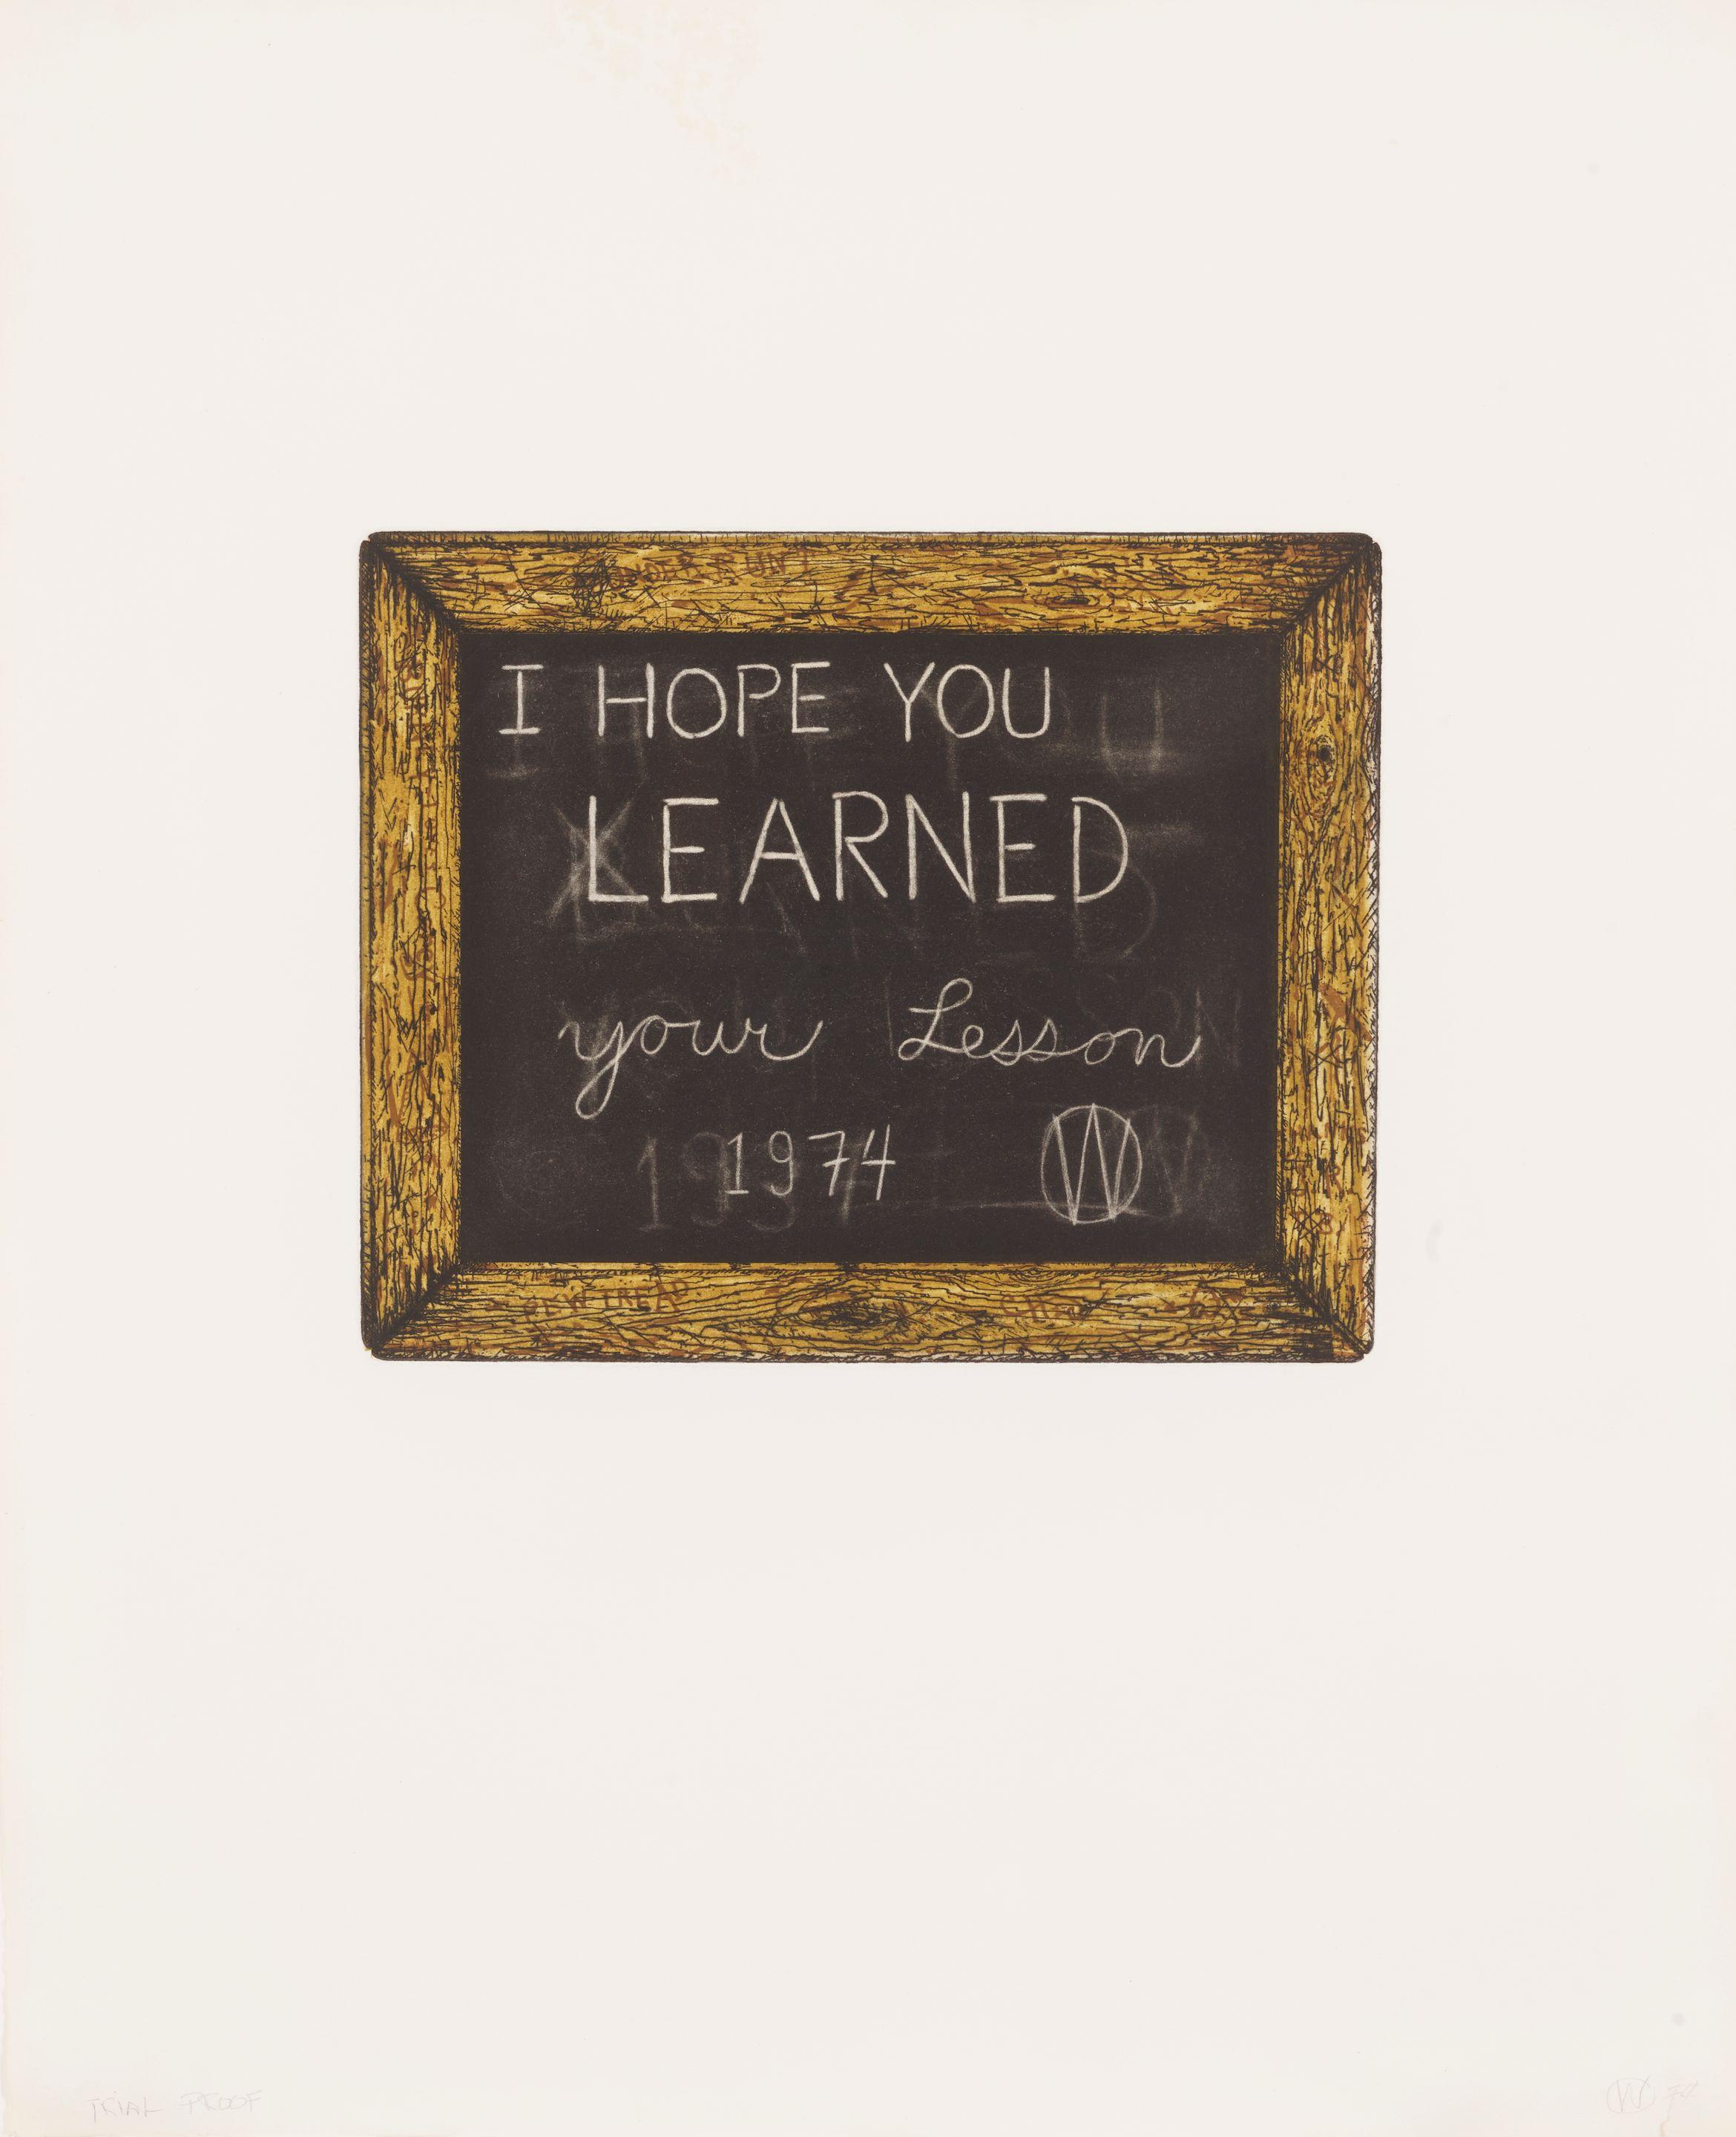 I HOPE YOU
LEARNED
your Lesson
1974 W
TRIAL PROOF W 74